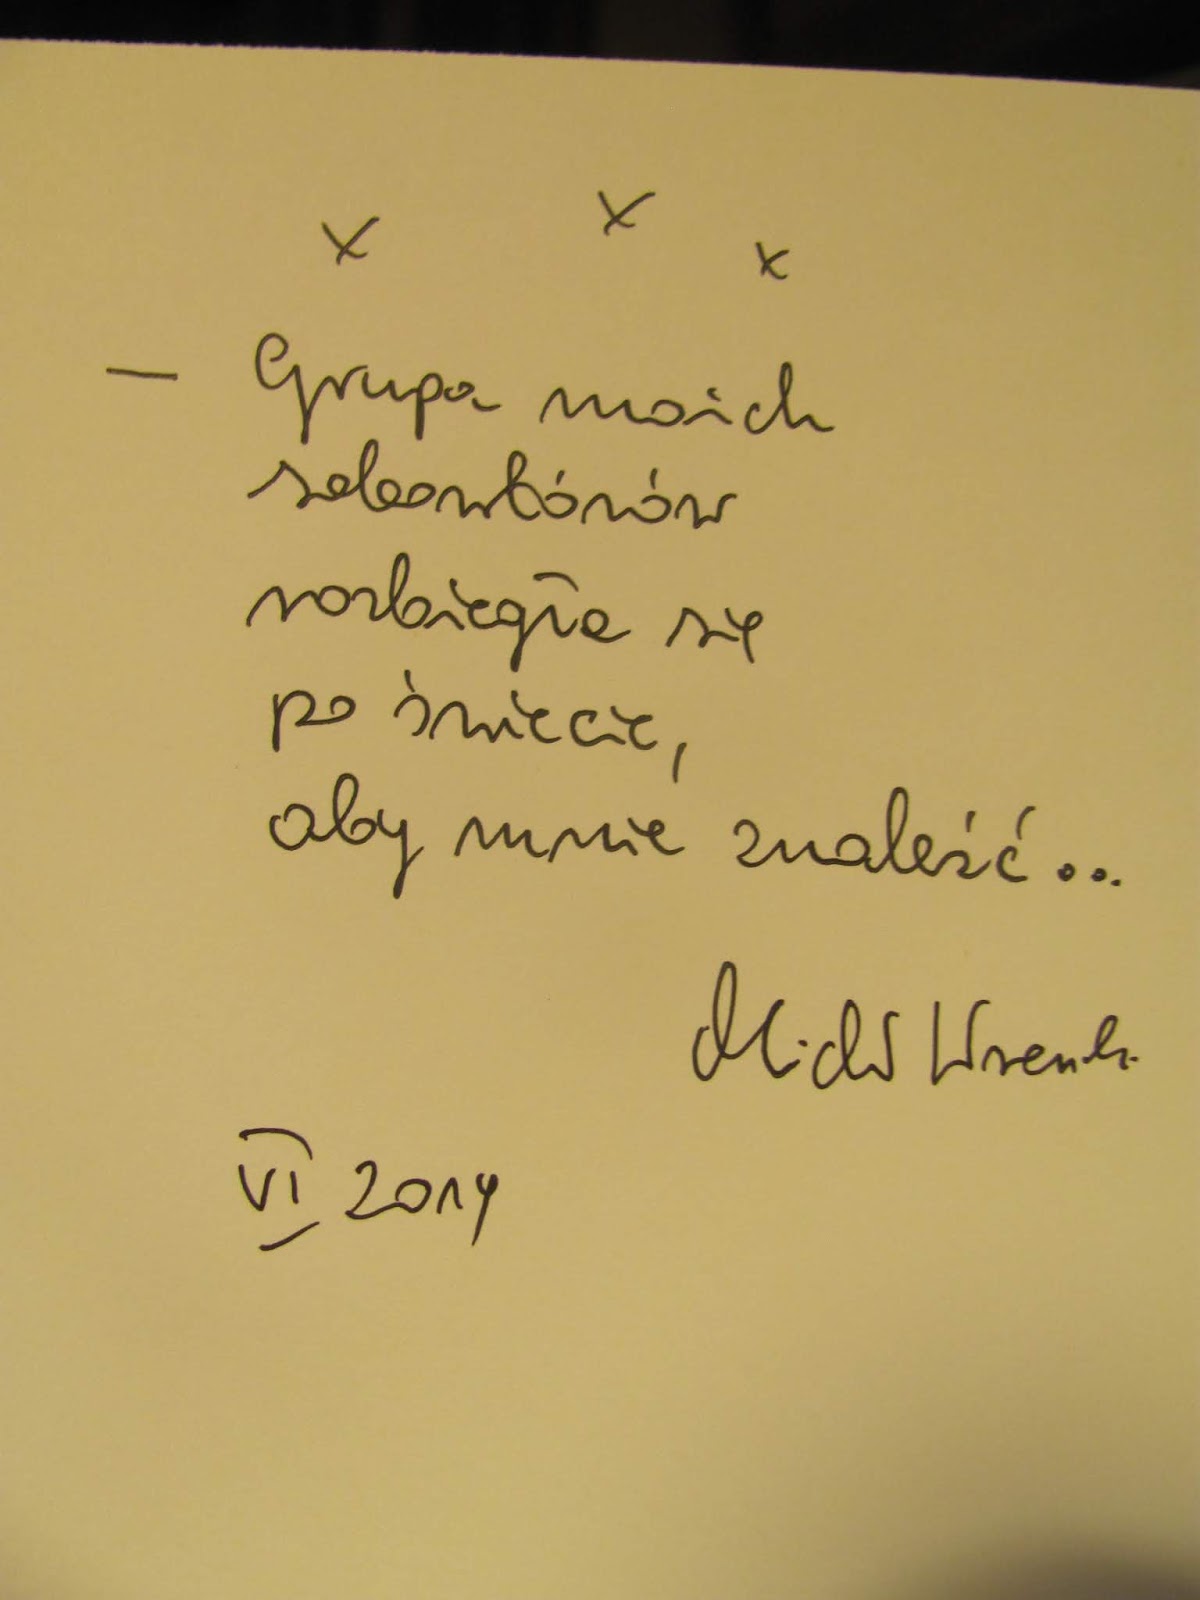 x x x
— Grupa moich
sobowtórów
rozbiegła się
po świecie,
aby mnie znaleźć...
VI 2014